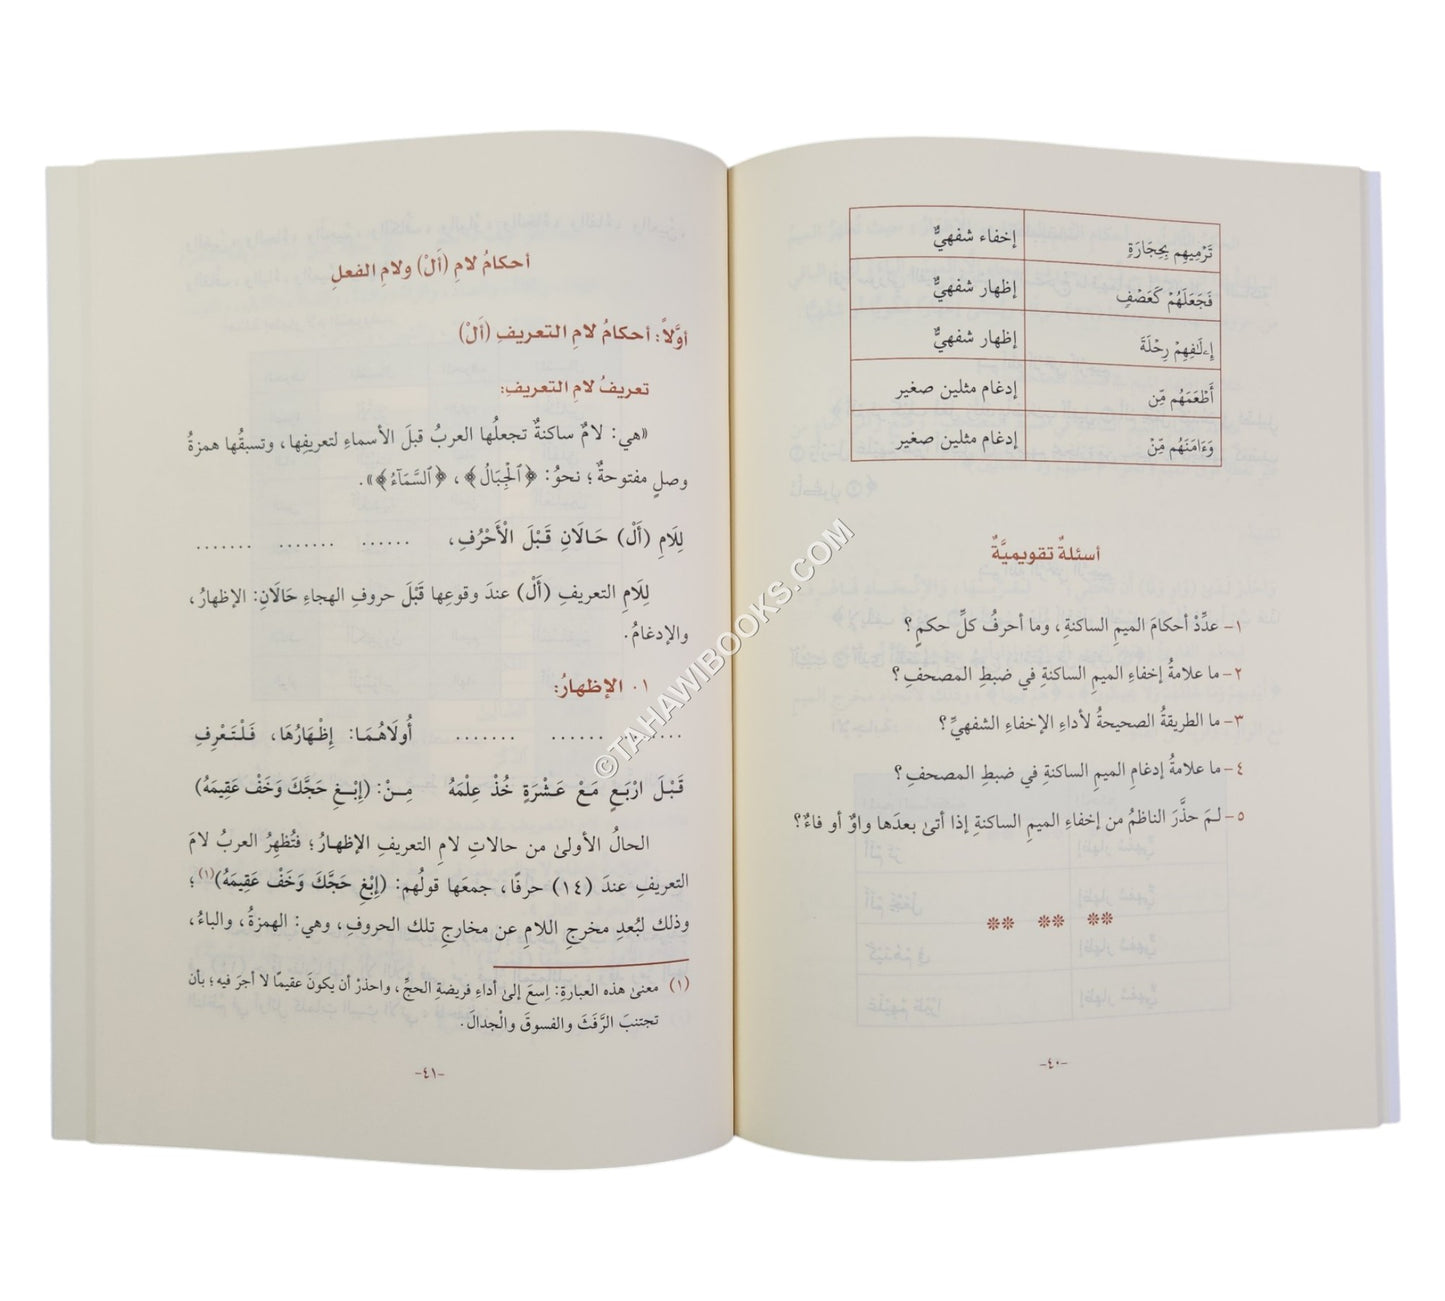 تَرْمِيهِم بِحِجَارَةٍ إخفاء شفهيٌّ
فَجَعَلَهُمْ كَعَصْفٍ إظهار شفهيٌّ
إِۦلَٰفِهِمْ رِحْلَةَ إظهار شفهيٌّ
أَطْعَمَهُم مِّن إدغام مثلين صغير
وَءَامَنَهُم مِّنْ إدغام مثلين صغير
أسئلةٌ تقويميَّةٌ
١- عدِّدْ أحكامَ الميمِ الساكنةِ، وما أحرفُ كلِّ حكمٍ؟
٢- ما علامةُ إخفاءِ الميمِ الساكنةِ في ضبطِ المصحفِ؟
٣- ما الطريقةُ الصحيحةُ لأداءِ الإخفاءِ الشفهيِّ؟
٤- ما علامةُ إدغامِ الميمِ الساكنةِ في ضبطِ المصحفِ؟
٥- لمَ حذَّرَ الناظمُ من إخفاءِ الميمِ الساكنةِ إذا أتىٰ بعدَها واوٌ أو فاءٌ؟
-٤٠-
أحكامُ لامِ (أَلْ) ولامِ الفعلِ
أوَّلاً: أحكامُ لامِ التعريفِ (أَلْ)
تعريفُ لامِ التعريفِ:
«هي: لامٌ ساكنةٌ تجعلُها العربُ قبلَ الأسماءِ لتعريفِها، وتسبقُها همزةُ
وصلٍ مفتوحةٌ؛ نحوُ: ﴿ٱلْجِبَالُ﴾، ﴿ٱلسَّمَآءُ﴾».
لِلَامِ (أَلْ) حَالَانِ قَبْلَ الْأَحْرُفِ، ...... ....... .......
لِلَامِ التعريفِ (أَلْ) عندَ وقوعِها قَبْلَ حروفِ الهجاءِ حَالَانِ: الإظهارُ،
والإدغامُ.
٠١ الإظهارُ:
....... ...... ....... أُولَاهُمَا: إِظْهَارُهَا، فَلْتَعْرِفِ
قَبْلَ ارْبَعٍ مَعْ عَشْرَةٍ خُذْ عِلْمَهُ مِنْ: (إِبْغِ حَجَّكَ وَخَفْ عَقِيمَهُ)
الحالُ الأولىٰ من حالاتِ لامِ التعريفِ الإظهارُ؛ فتُظهِرُ العربُ لامَ
التعريفِ عندَ (١٤) حرفًا، جمعَها قولُهم: (إِبْغِ حَجَّكَ وَخَفْ عَقِيمَهُ)(١)؛
وذلك لبُعدِ مخرجِ اللامِ عن مخارجِ تلك الحروفِ، وهي: الهمزةُ، والباءُ،
(١) معنىٰ هذه العبارةِ: إسعَ إلىٰ أداءِ فريضةِ الحجِّ، واحذرْ أن يكونَ عقيمًا لا أجرَ فيه؛ بأن
تجتنبَ الرَّفَثَ والفسوقَ والْجدالَ.
-٤١-
©TAHAWIBOOKS.COM